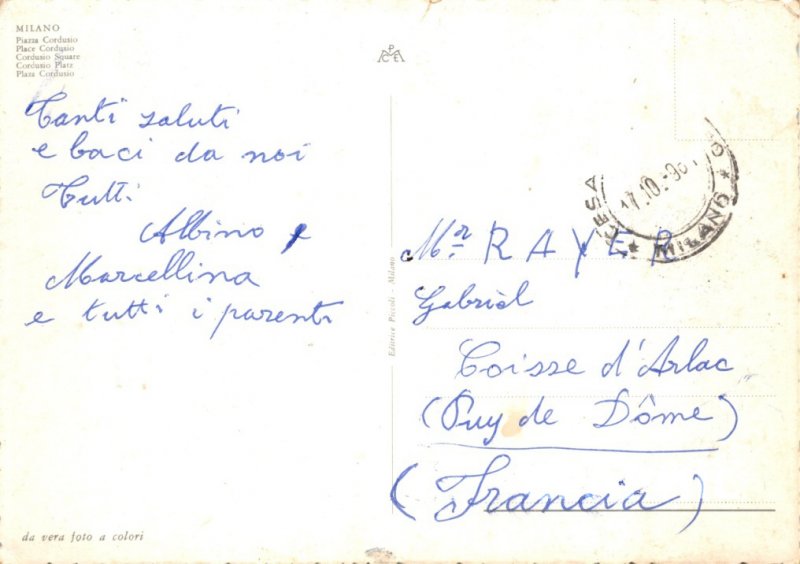 MILANO
Piazza Cordusio
Place Cordusio
Cordusio Square
Cordusio Platz
Plaza Cordusio
PCE
Tanti saluti
e baci da noi
Tutti
Albino e
Marcellina
e tutti i parenti
da vera foto a colori
Editrice Piccoli - Milano
17.10
MILANO
Mr. RAYER
Gabriel
Coisse d'Arlac
(Puy de Dôme)
(Francia)